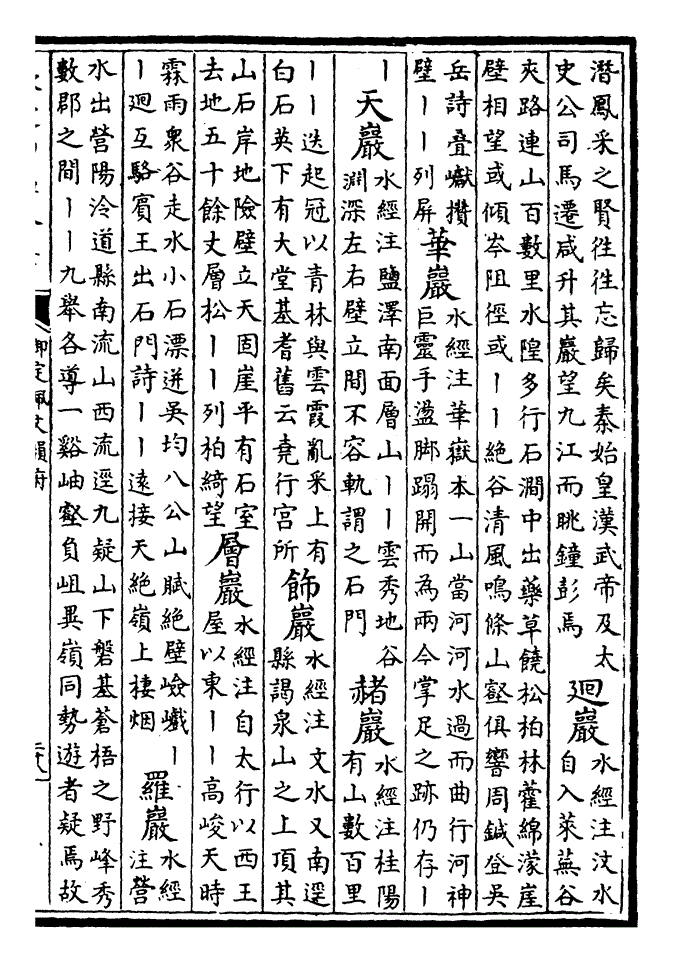 潛鳳采之賢徃徃忘歸矣秦始皇漢武帝及太
史公司馬遷咸升其巖望九江而眺鐘彭焉
迴巖
水經注汶水
自入萊蕪谷
夾路連山百數里水隍多行石澗中出藥草饒松柏林藿綿濛崖
壁相望或傾岑阻徑或丨丨絕谷清風鳴條山壑俱響周鍼登吳
岳詩疊巘攢
壁丨丨列屏
華巖
水經注華嶽本一山當河河水過而曲行河神
巨靈手盪脚蹋開而為兩今掌足之跡仍存丨
丨
天巖
水經注鹽澤南面層山丨丨雲秀地谷
淵深左右壁立間不容軌謂之石門
赭巖
水經注桂陽
有山數百里
丨丨迭起冠以青林與雲霞亂采上有
白石英下有大堂基耆舊云堯行宮所
飾巖
水經注文水又南逕
縣謁泉山之上頂其
山石岸地險壁立天固崖平有石室
去地五十餘丈層松丨丨列柏綺望
層巖
水經注自太行以西王
屋以東丨丨高峻天時
霖雨衆谷走水小石漂迸吳均八公山賦絕壁嶮巇丨
丨迴互駱賓王出石門詩丨丨遠接天絕嶺上棲烟
羅巖
水經
注營
水出營陽泠道縣南流山西流逕九疑山下磐基蒼梧之野峰秀
數郡之間丨丨九舉各導一谿岫壑負岨異嶺同勢遊者疑焉故
御定佩文韻府